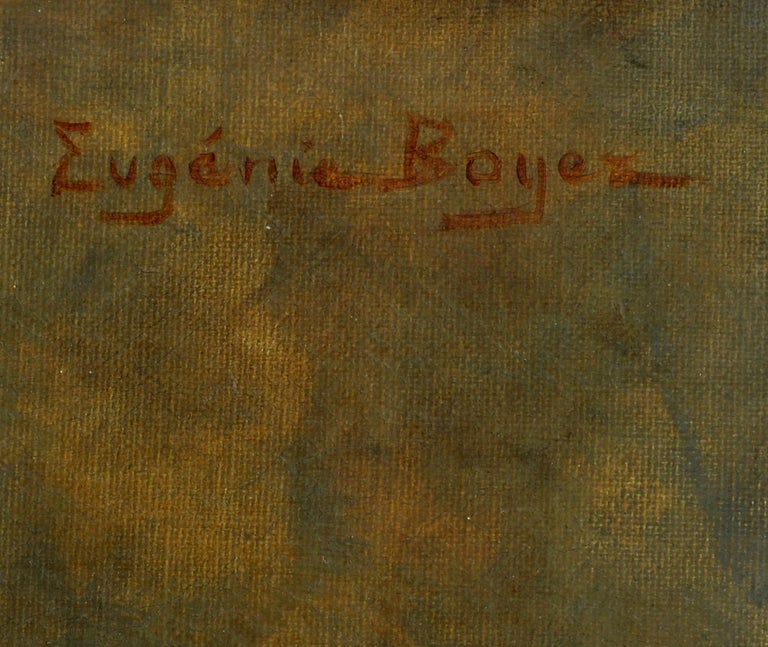 Eugénie Boyer